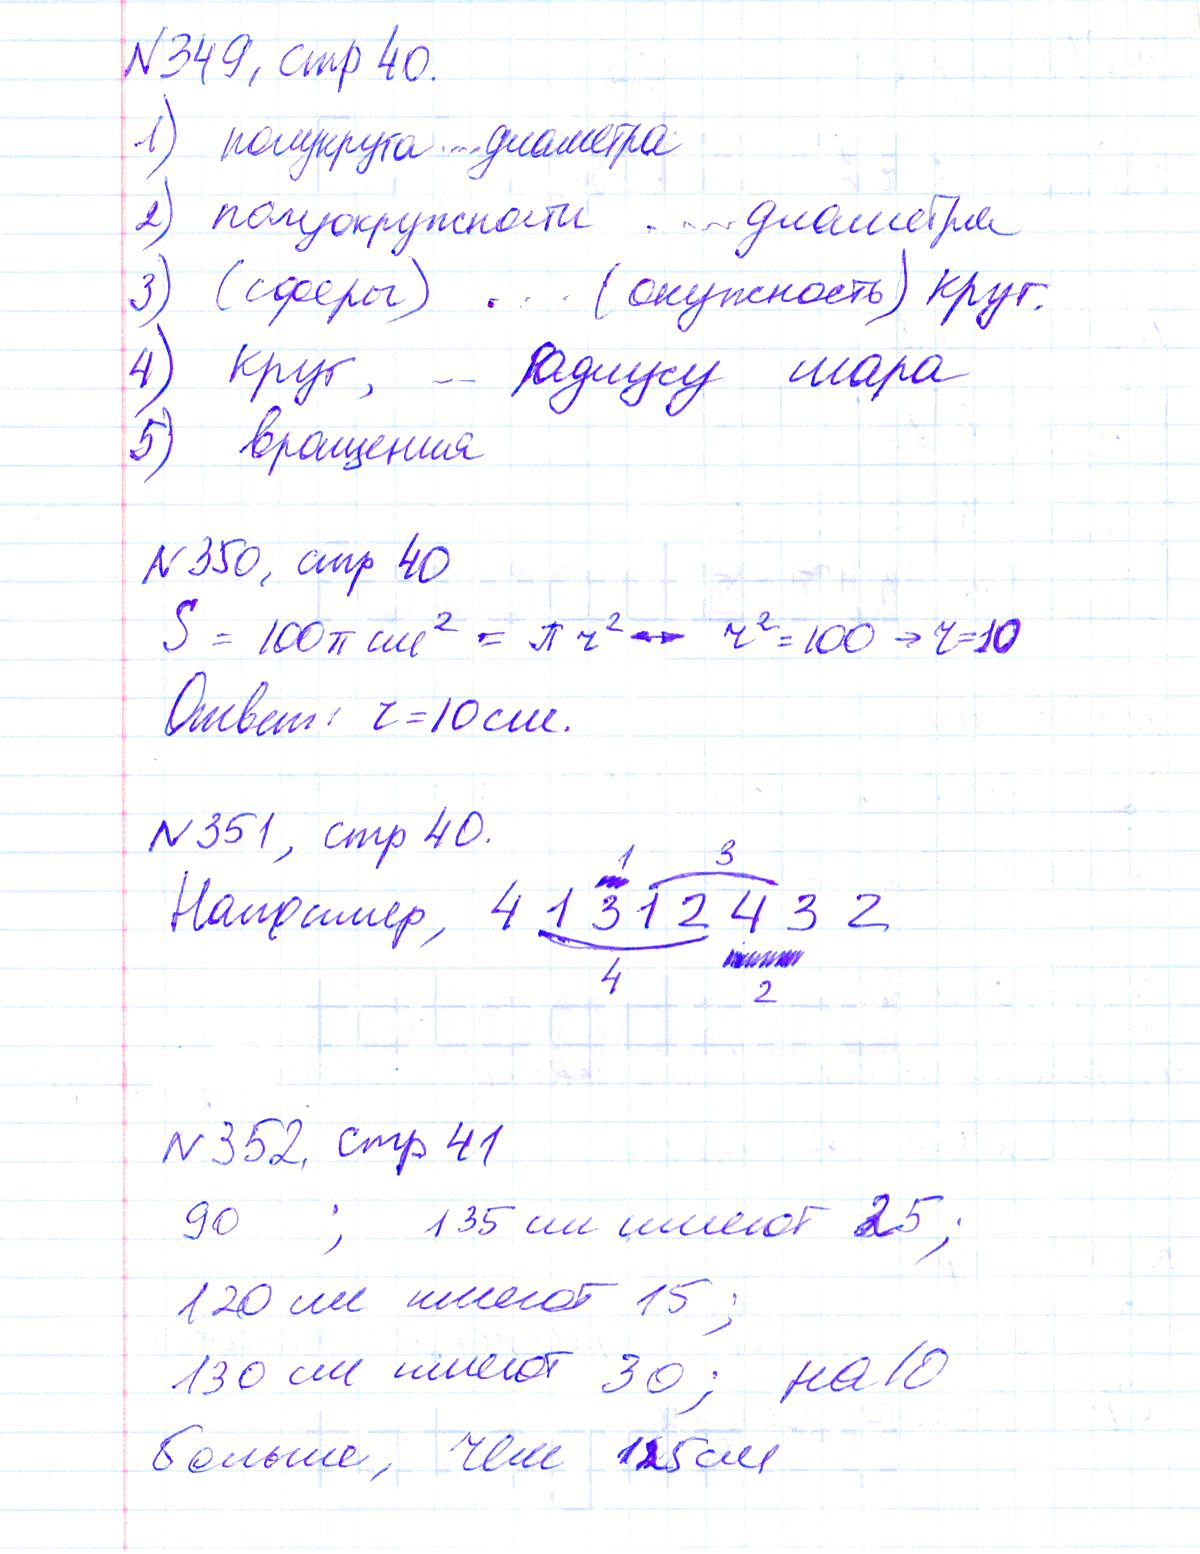 N349, стр 40.
1) полукруга ... диаметра
2) полуокружности .... диаметра
3) (сферы) ... (окужность) круг.
4) круг, -- радиусу шара
5) вращения
N350, стр 40
S = 100π см² = πr² → r² = 100 → r = 10
Ответ: r = 10 см.
N351, стр 40.
1 3
Например, 4 1 3 1 2 4 3 2
4 2
N352, стр 41
90 ; 135 см имеют 25;
120 см имеют 15;
130 см имеют 30; на 10
больше, чем 125 см